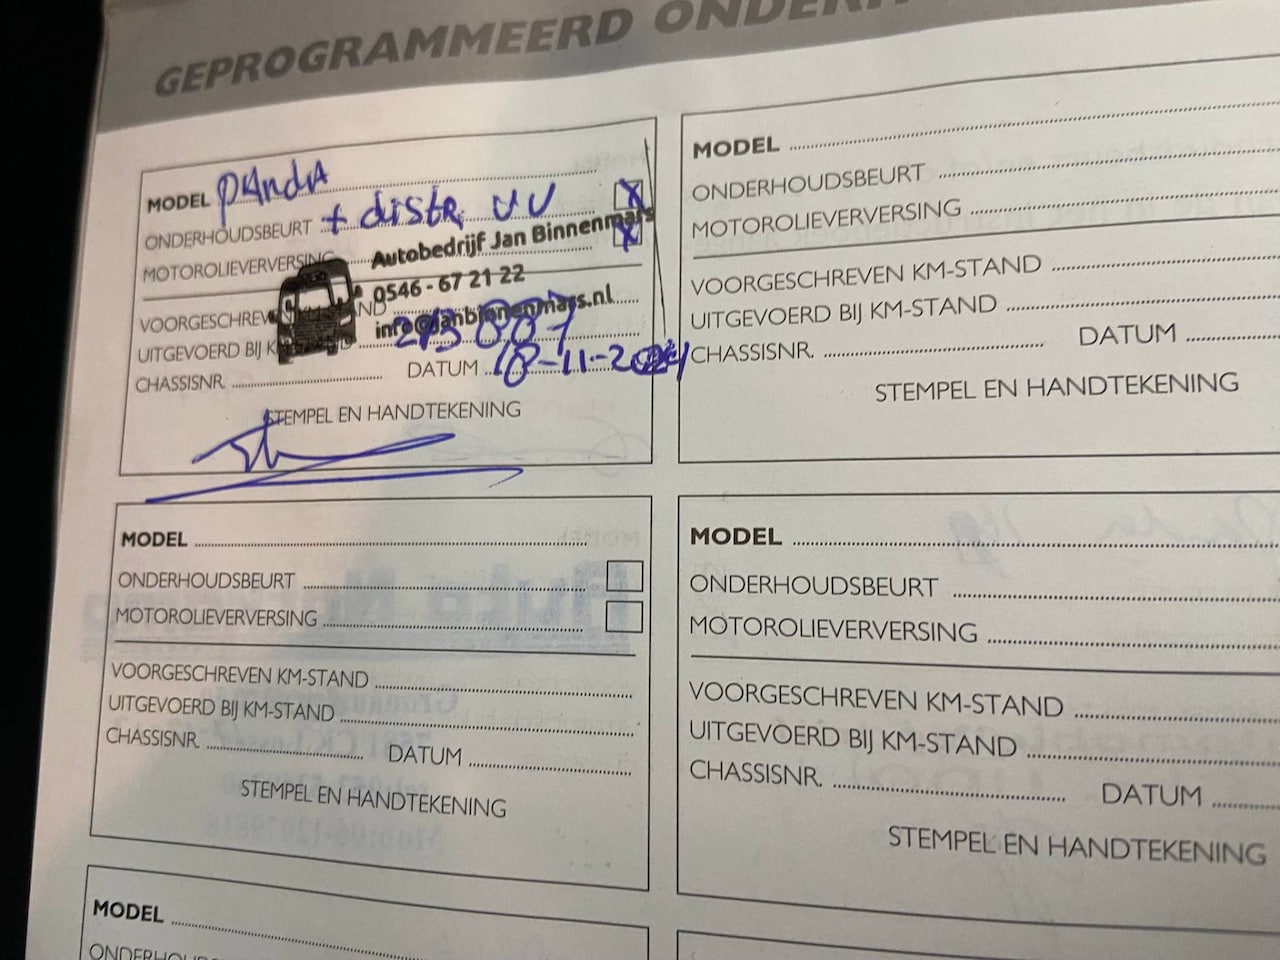 GEPROGRAMMEERD
MODEL PANdA
ONDERHOUDSBEURT + distr. VV X
MOTOROLIEVERVERSING X
Autobedrijf Jan Binnenmars
0546 - 67 21 22
info@janbinnenmars.nl
VOORGESCHREVEN KM-STAND
UITGEVOERD BIJ KM-STAND 213007
CHASSISNR. DATUM 18-11-2024
STEMPEL EN HANDTEKENING
MODEL
ONDERHOUDSBEURT
MOTOROLIEVERVERSING
VOORGESCHREVEN KM-STAND
UITGEVOERD BIJ KM-STAND
CHASSISNR. DATUM
STEMPEL EN HANDTEKENING
MODEL
ONDERHOUDSBEURT
MOTOROLIEVERVERSING
VOORGESCHREVEN KM-STAND
UITGEVOERD BIJ KM-STAND
CHASSISNR. DATUM
STEMPEL EN HANDTEKENING
MODEL
ONDERHOUDSBEURT
MOTOROLIEVERVERSING
VOORGESCHREVEN KM-STAND
UITGEVOERD BIJ KM-STAND
CHASSISNR. DATUM
STEMPEL EN HANDTEKENING
MODEL